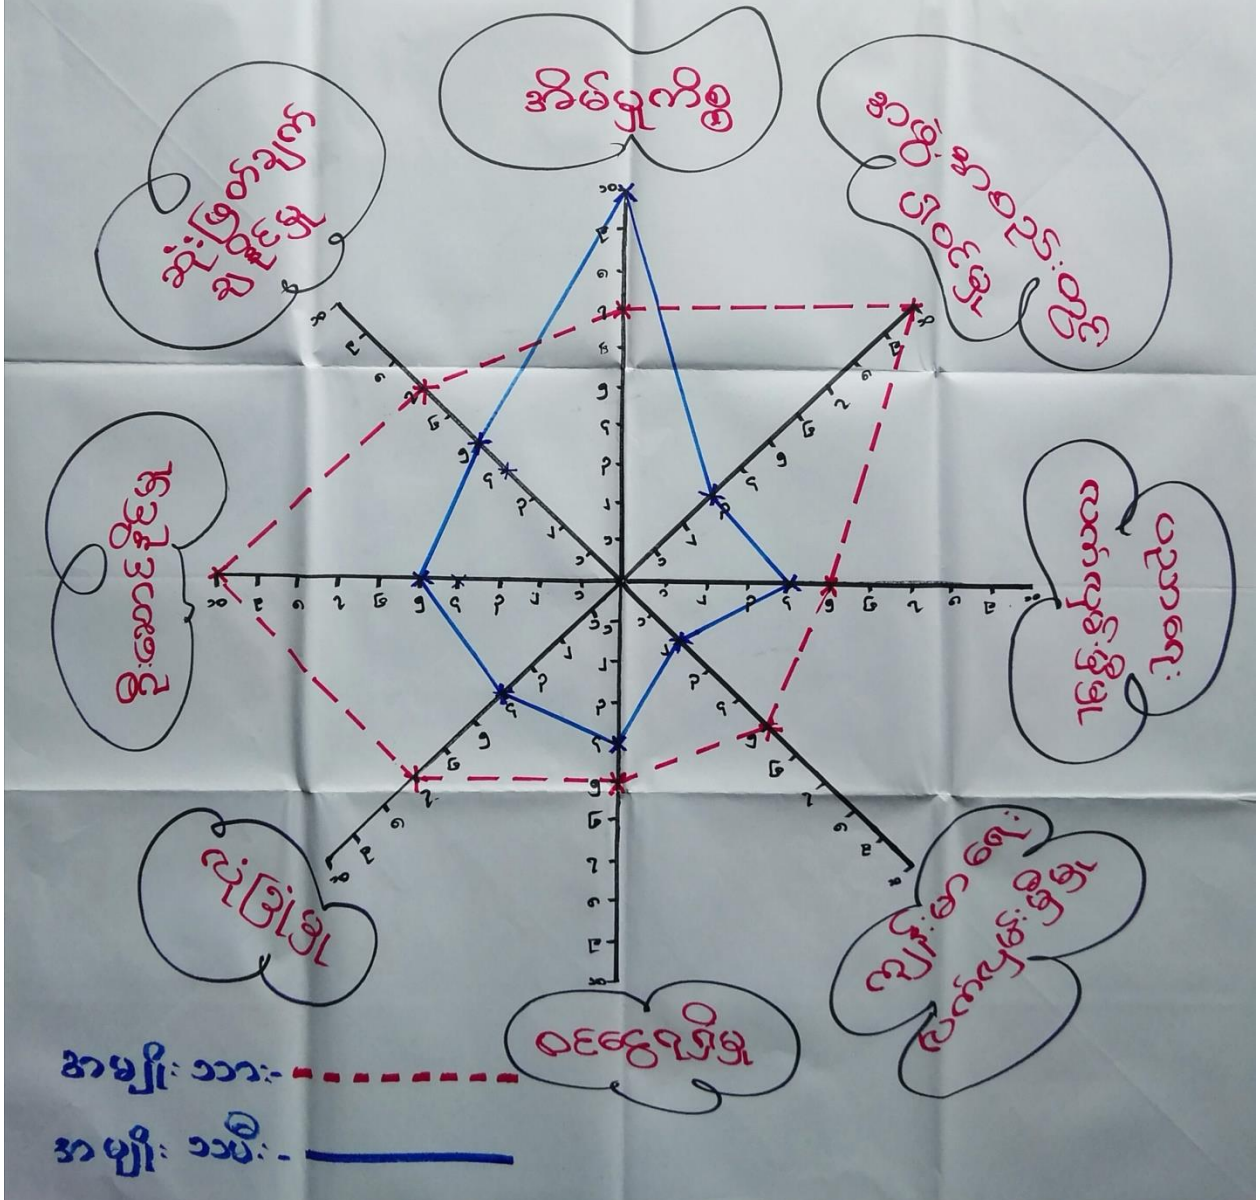 အိမ်မှုကိစ္စ
အဖွဲ့အစည်းတွင်
ပါဝင်မှု
ပညာရေး
လက်လှမ်းမှီမှု
ကျန်းမာရေး
လက်လှမ်းမှီမှု
ဝင်ငွေရရှိမှု
လုံခြုံမှု
ဦးဆောင်နိုင်မှု
ဆုံးဖြတ်ချက်
ချနိုင်မှု
၁၀
၉
၈
၇
၆
၅
၄
၃
၂
၁
အမျိုးသား-
အမျိုးသမီး-